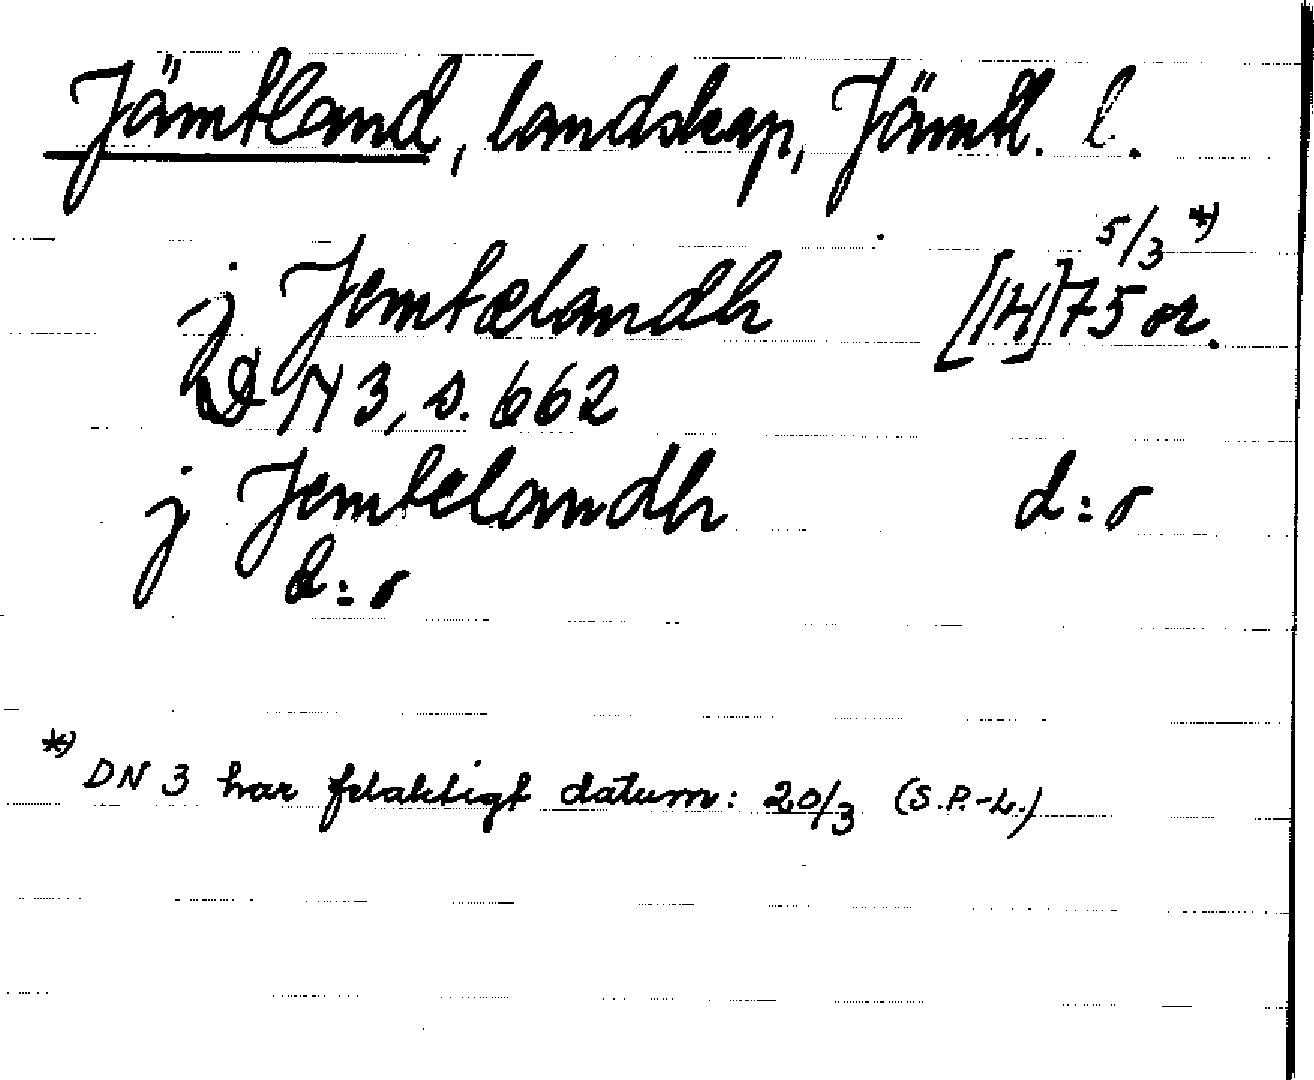 Jämtland, landskap, Jämtl. l.
j Jemtælandh [14]75 5/3 *) or.
DN 3, s. 662
j Jemtelandh d:o
d:o
*) DN 3 har felaktigt datum: 20/3 (S.P.-L.)